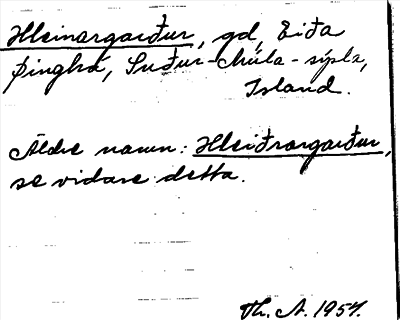 Hleinargarður, gd, Eiða
þinghá, Suður-Múla-sýsla,
Island.
Äldre namn: Hleiðrargarður,
se vidare detta.
Th. A. 1957.